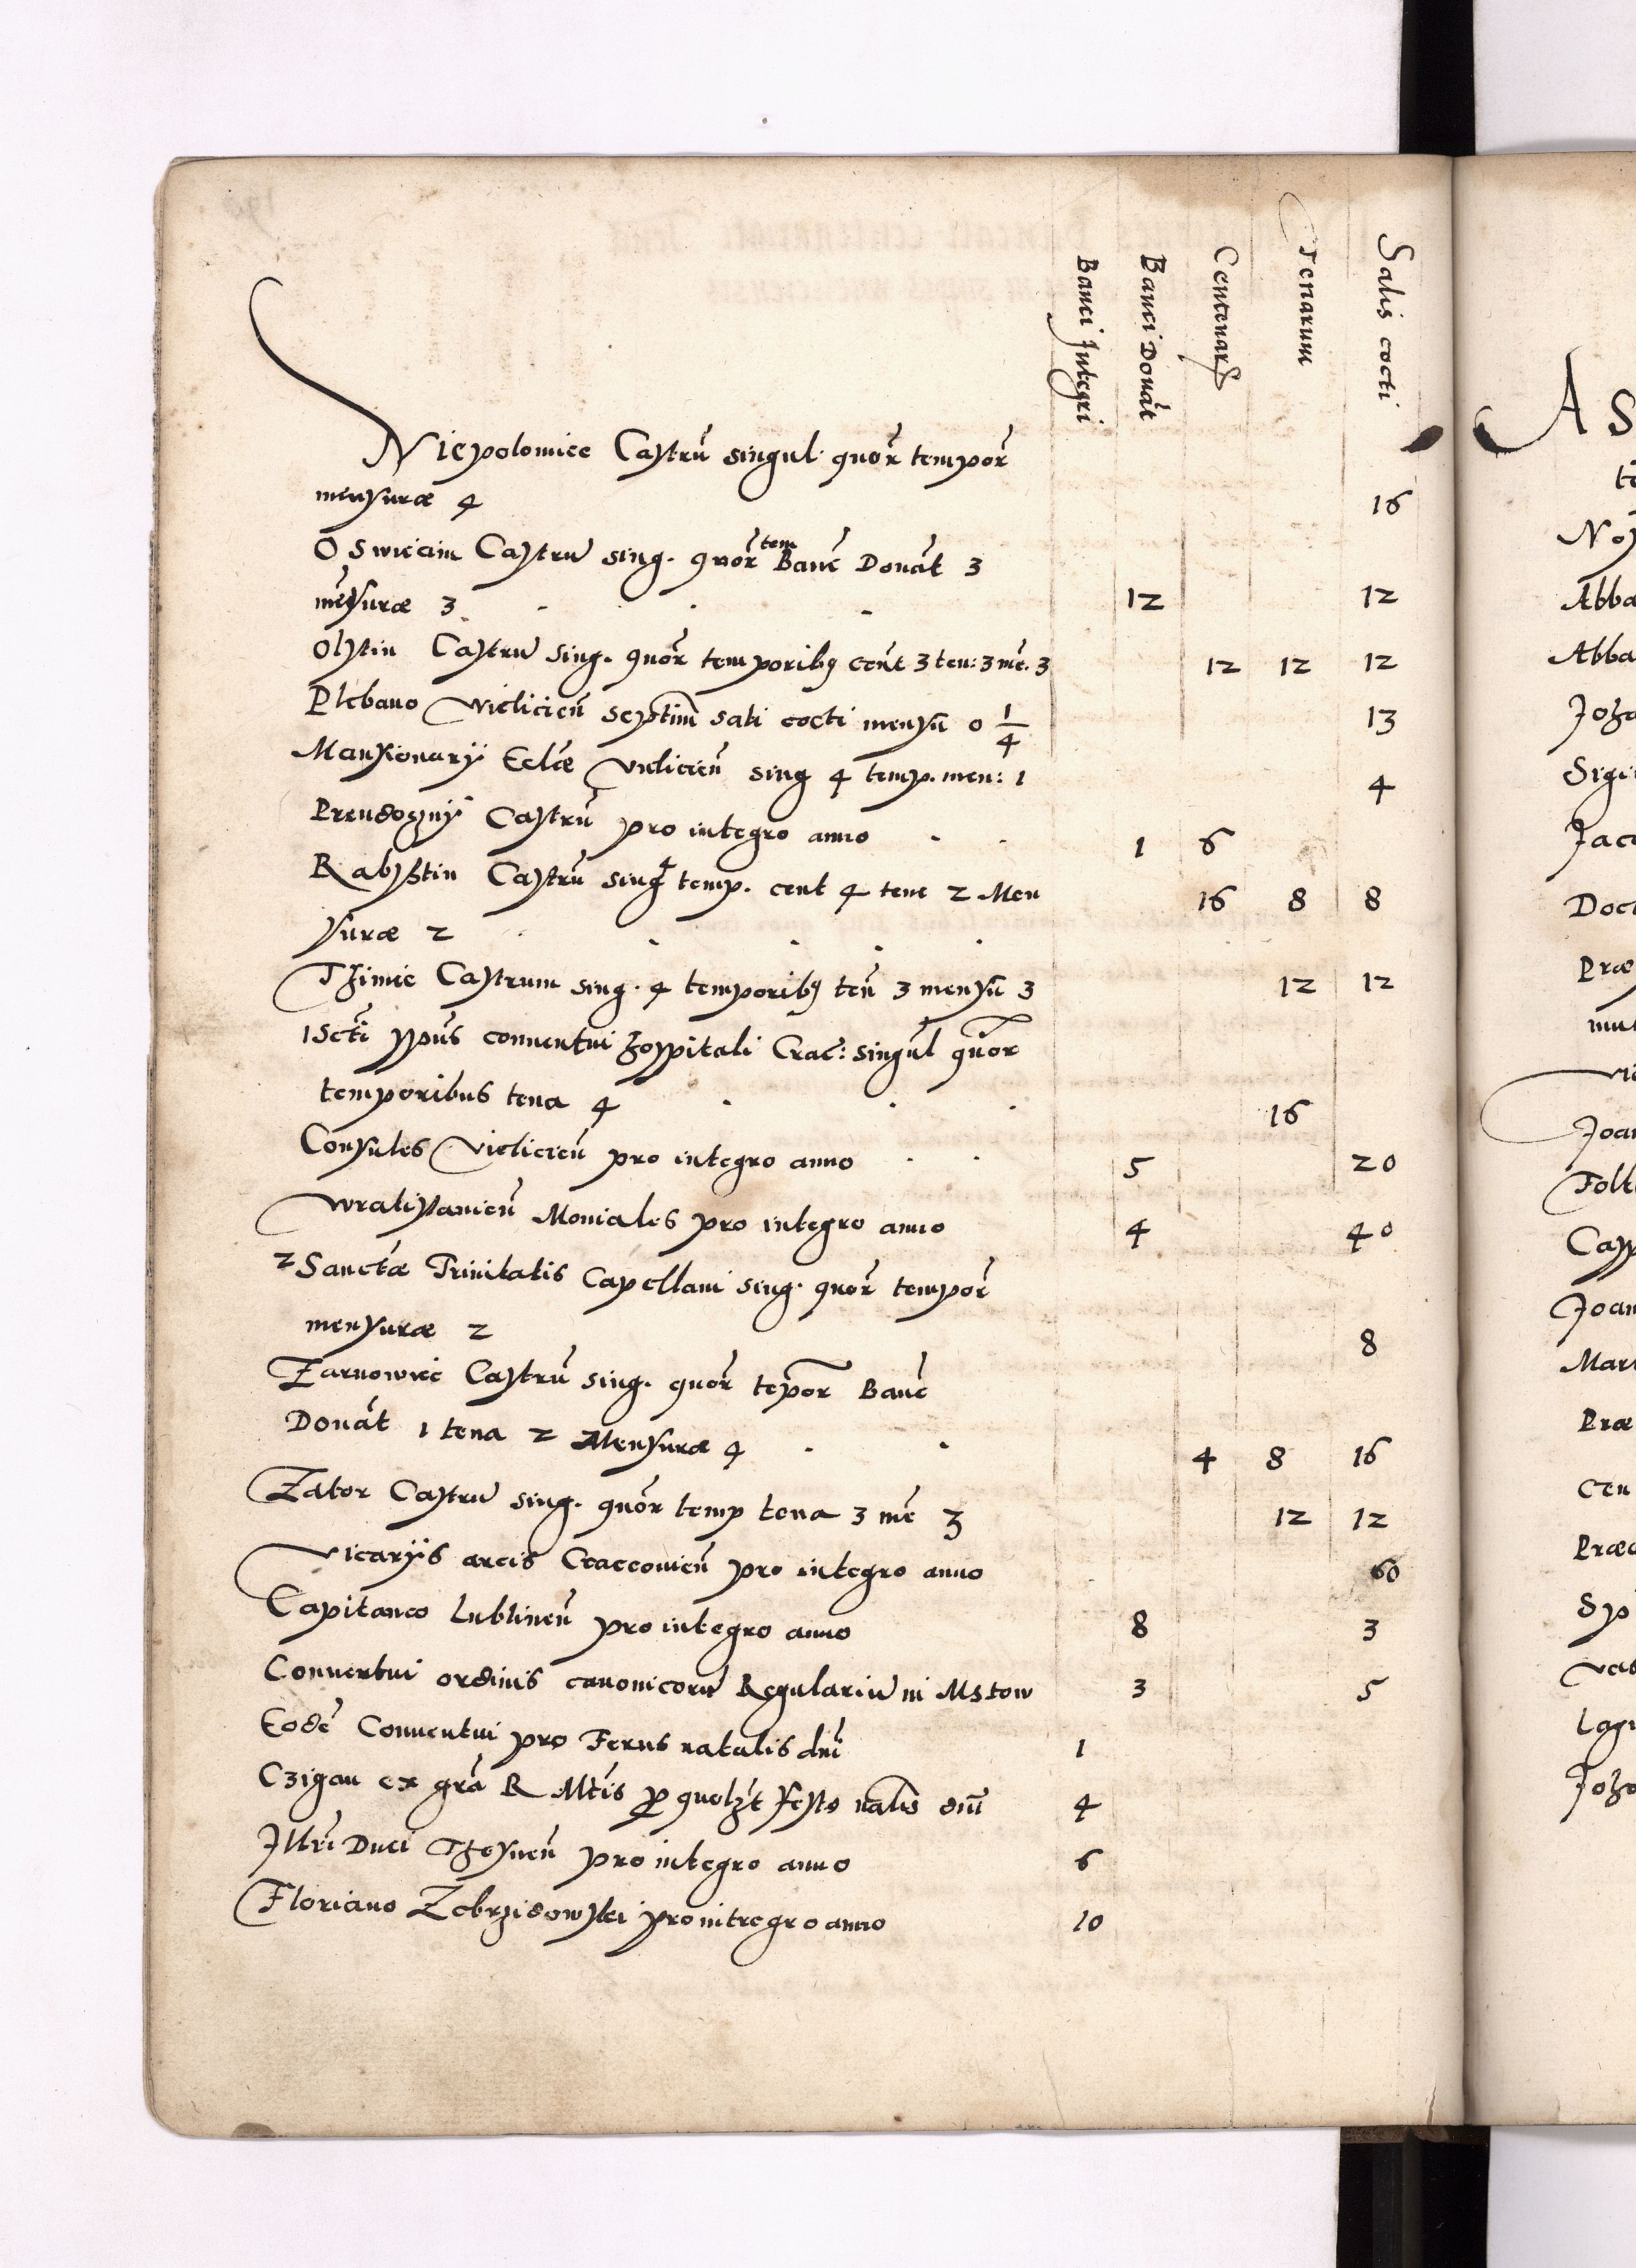 Banci Integri
Banci Donat
Centenar
Tenarum
Salis cocti
Niepolomice Castrū singul: quor tempor
mensuræ 4 16
Oswiecim Castrū sing. quor tem Banc Donat 3
mēsuræ 3 12 12
Olstin Castrū sing. quor temporibq cent 3 ten: 3 me. 3 12 12 12
Plebano Vieliciēn septim sali cocti mensū 0 1/4 13
Mansionarÿ Eclæ Vieliciēn sing 4 temp. men: 1 4
Castrū pro integro anno 1 6
Rabsztin Castrū sing 4 temp. cent 4 tene 2 Men
suræ 2 16 8 8
Castrum sing. 4 temporibq ten 3 mensū 3 12 12
1 Scti spūs conventui hospitali Crac: singul quor
temporibus tena 4 16
Consules Vieliciēn pro integro anno 5 20
Moniales pro integro anno 4 40
2 Sanctæ Trinitatis Capellani sing. quor tempor
mensuræ 2 8
Zarnowiec Castrū sing. quor tēpor Banc
Donat 1 tena 2 Mensuræ 4 4 8 16
Zator Castrū sing. quor temp tena 3 me 3 12 12
Vicarÿs arcis Craccoviēn pro integro anno 60
Capitaneo Lublinēn pro integro anno 8 3
Conventui ordinis canonicorū Regulariū in Mstow 3 5
Eodē Conventui pro natalis dni 1
Czigan ex gra R Mtis festo nalis dni 4
Illri Duci pro integro anno 6
Floriano Zebrzidowski pro integro anno 10
A S
Abba
Abba
Sigi
Jaco
Doct
Præ
Joan
Folt
Casp
Joan
Mar
Præ
Cen
Præ